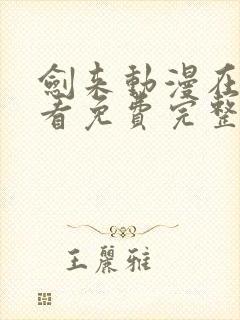 劍来動漫在
看免費完整
王麗雅